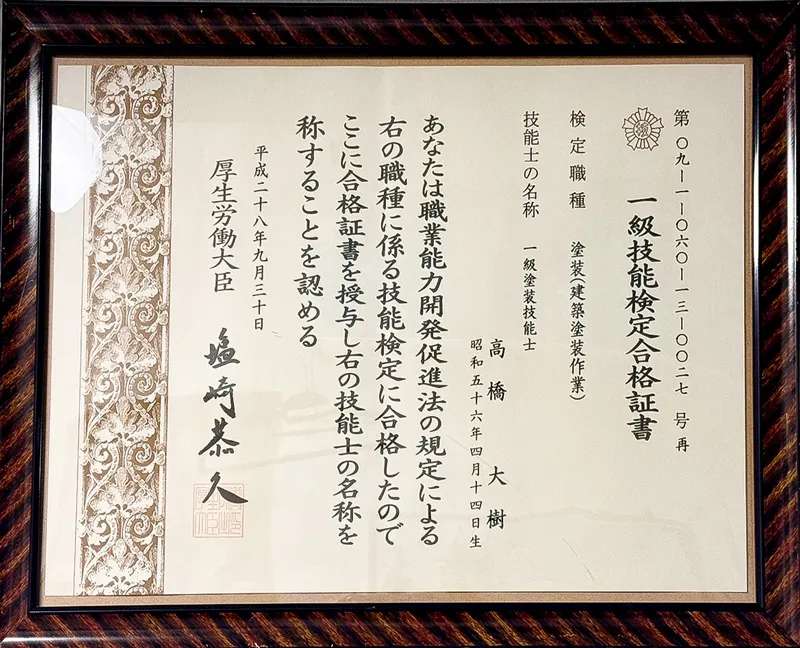 第〇九-一-〇六〇-一三-〇〇二七 号 再
一級技能検定合格証書
検定職種 塗装(建築塗装作業)
技能士の名称 一級塗装技能士
高橋 大樹
昭和五十六年四月十四日生
あなたは職業能力開発促進法の規定による
右の職種に係る技能検定に合格したので
ここに合格証書を授与し右の技能士の名称を
称することを認める
平成二十八年九月三十日
厚生労働大臣 塩崎恭久